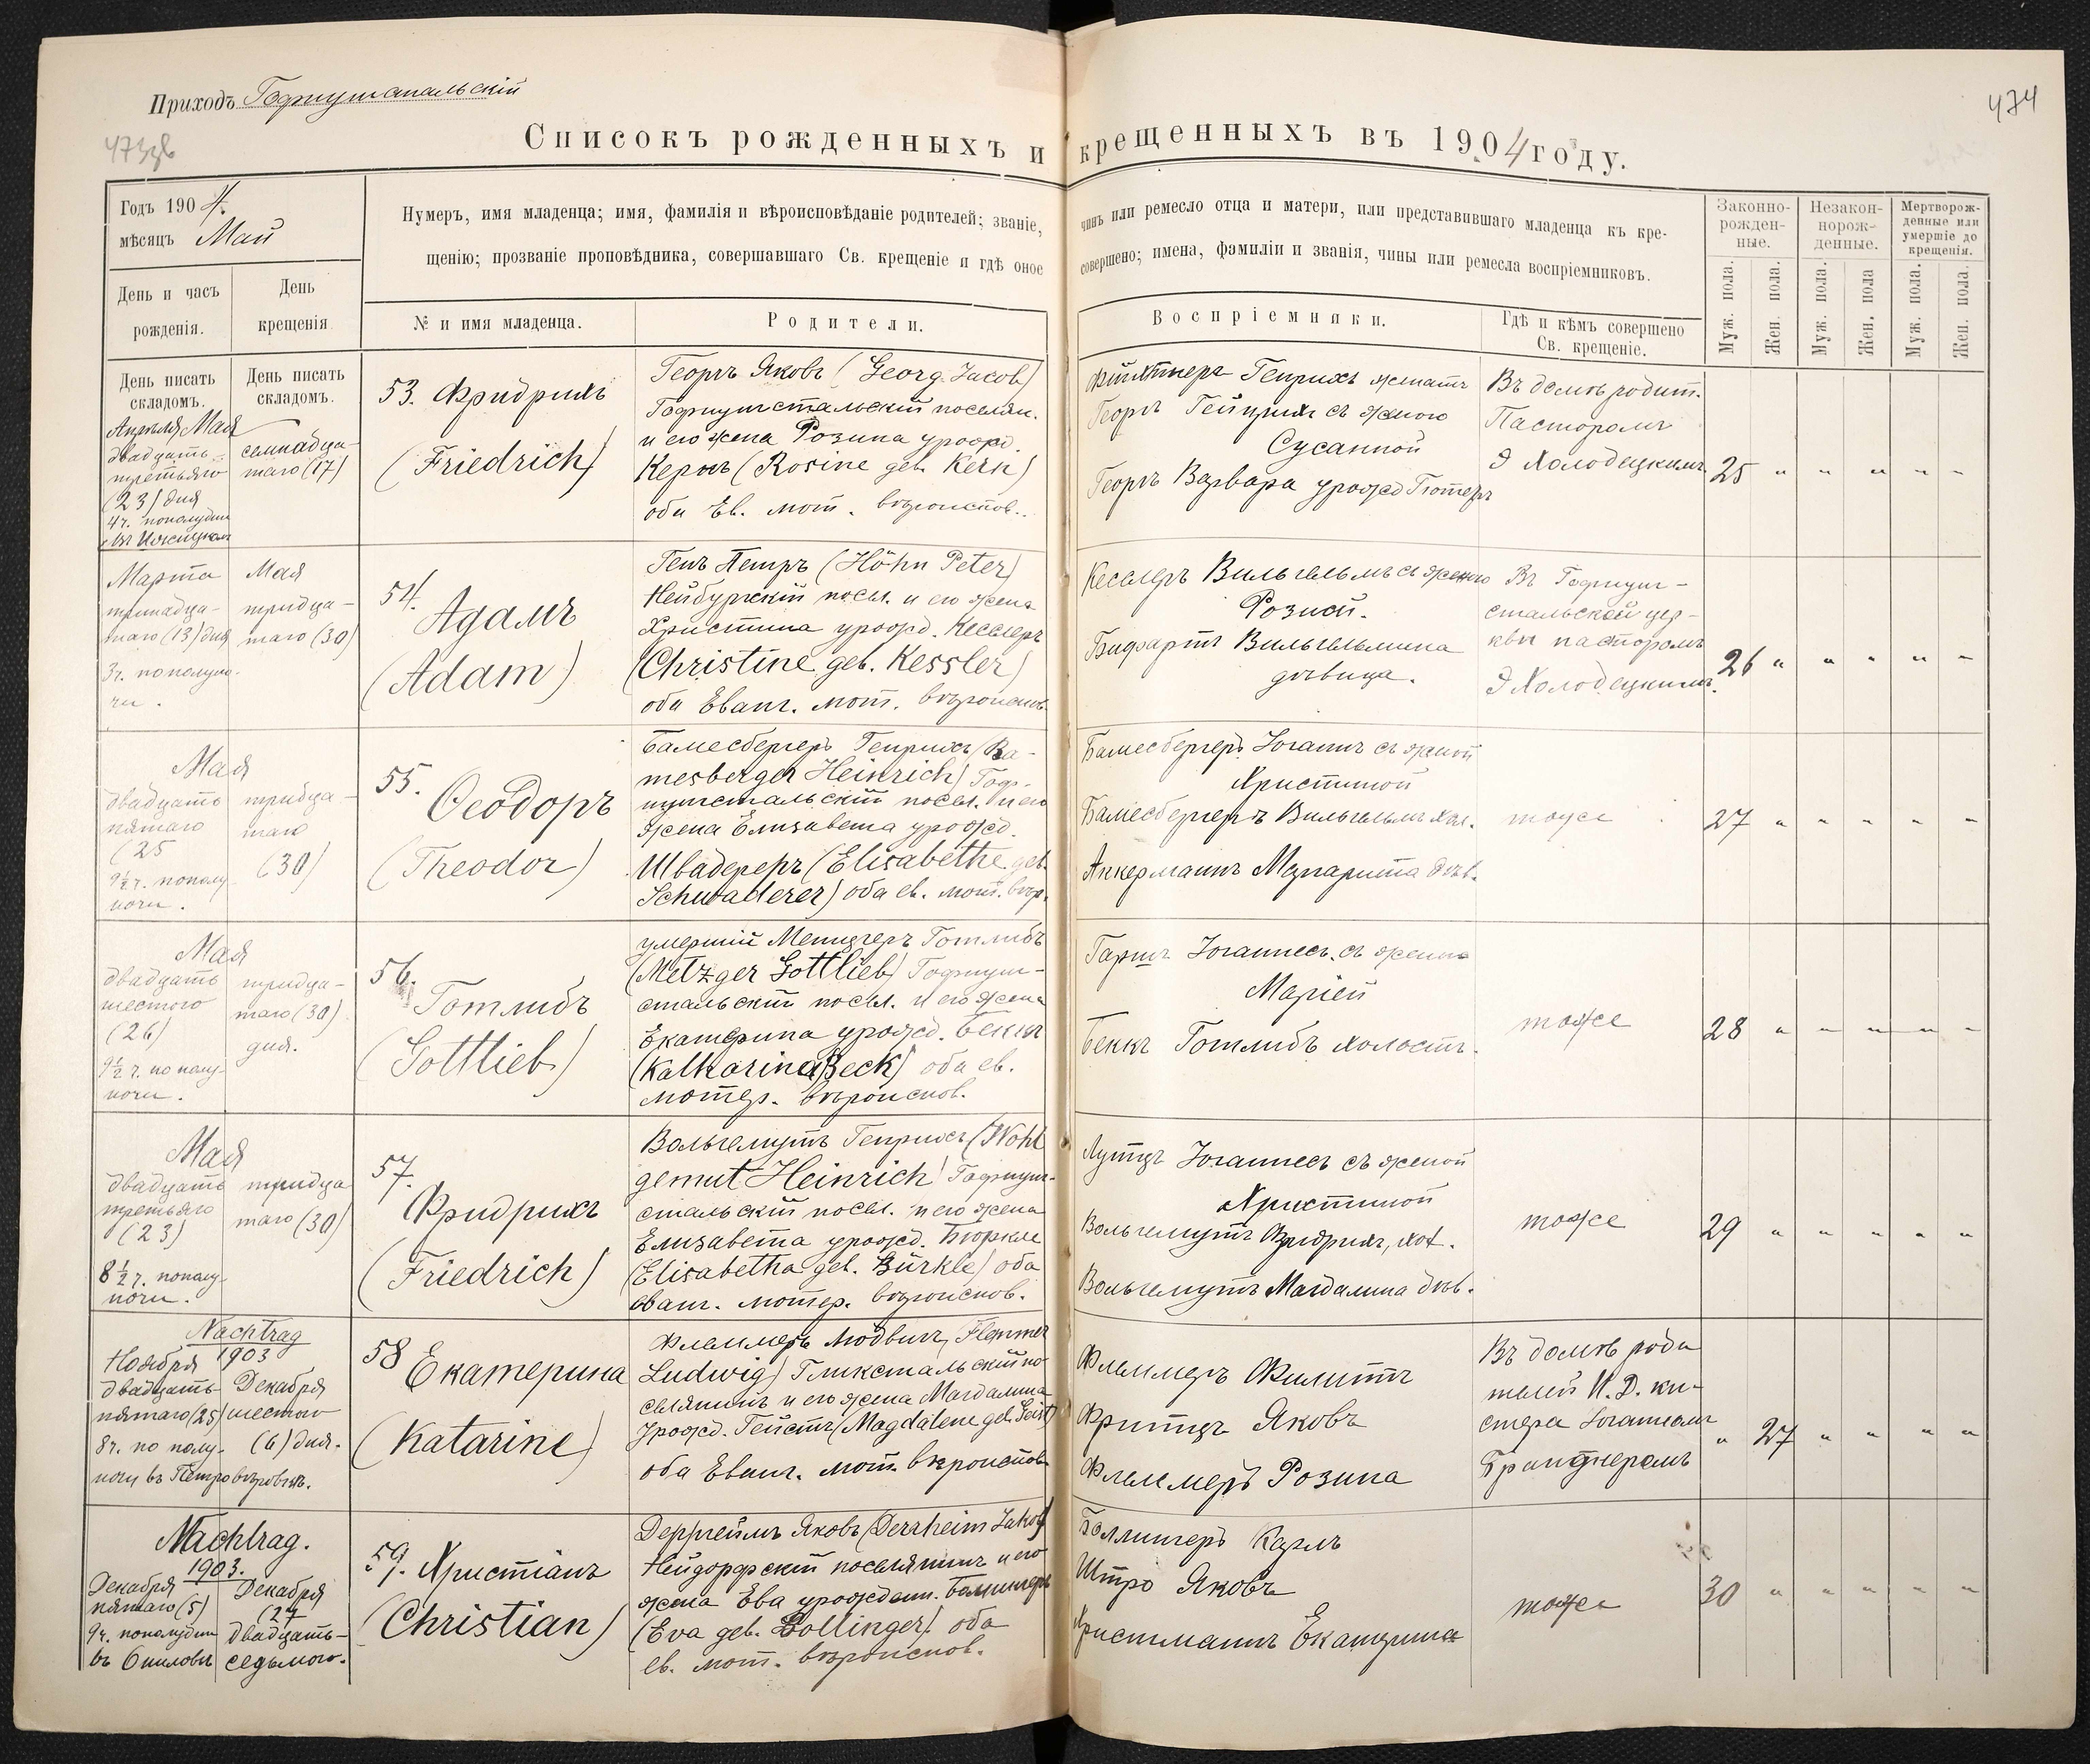 Приходъ Гофнунгстальскій
473об
474
Списокъ рожденныхъ и крещенныхъ въ 1904 году.
Годъ 1904.
мѣсяцъ Май
День и часъ рожденія.
День крещенія
Нумеръ, имя младенца; имя, фамилія и вѣроисповѣданіе родителей; званіе, чинъ или ремесло отца и матери, или представившаго младенца къ кре-
щенію; прозваніе проповѣдника, совершавшаго Св. крещеніе и гдѣ оное совершено; имена, фамиліи и званія, чины или ремесла воспріемниковъ.
№ и имя младенца.
Родители.
Воспріемники.
Гдѣ и кѣмъ совершено
Св. крещеніе.
Законно-
рожден-
ные.
Незакон-
норож-
денные.
Мертворож-
денные или
умершіе до
крещенія.
Муж. пола.
Жен. пола.
Муж. пола.
Жен. пола
Муж. пола.
Жен. пола.
День писать
складомъ.
День писать
складомъ.
Апрѣля
двадцать
третьяго
(23) дня
4 ч. пополудни
Мая
семнадца-
таго (17)
53. Фридрихъ
(Friedrich)
Георгъ Яковъ (Georg Jacob)
Гофнунгстальскій поселян.
и его жена Розина урожд.
Кернъ (Rosine geb. Kern)
оба Ев. лют. вѣроиспов.
Генрихъ женатъ
Георгъ Гейнрихъ съ женою
Сусанной
Георгъ Варвара урожд
Въ домѣ родит.
Пасторомъ
Э Холодецкимъ
25 " " " " "
Марта
тринадца-
таго (13) дня
3 ч. пополуно-
чи.
Мая
тридца-
таго (30)
54.
Адамъ
(Adam)
Генъ Петръ (Höhn Peter)
Нейбургскій посел. и его жена
Христина урожд. Кесслеръ
(Christine geb. Kessler)
оба Еванг. лют. вѣроиспов.
Кесслеръ Вильгельмъ съ женою
Розиной.
Вильгельмина
дѣвица.
Въ Гофнунг-
стальской цер-
кви пасторомъ
Э Холодецкимъ.
26 " " " " "
Мая
двадцать
пятаго
(25
9½ ч. пополу
ночи.
тридца-
таго
(30)
55.
Ѳеодоръ
(Theodor)
Бамесбергеръ Генрихъ (Ba-
mesberger Heinrich) Гоф-
нунгстальскій посел. и его
жена Елизавета урожд.
Швадереръ (Elisabethe geb.
Schwaderer) оба ев. лют. вѣр.
Бамесбергеръ Іоганнъ съ женой
Христиной
Бамесбергеръ Вильгельмъ хол.
Аккерманнъ Маргарита дѣв.
тоже
27 " " " " "
Мая
двадцать
шестого
(26)
9½ ч. по полу-
ночи.
тридца-
таго (30)
дня.
56.
Готлибъ
(Gottlieb)
умершій Мецгеръ Готлибъ
(Metzger Gottlieb) Гофнунг-
стальскій посел. и его жена
Екатерина урожд. Беккъ
(Katharina Beck) оба ев.
лютер. вѣроиспов.
Іоганнесъ съ женою
Маріей
Беккъ Готлибъ холостъ.
тоже
28 " " " " "
Мая
двадцать
третьяго
(23)
8½ ч. пополу-
ночи.
тридца
таго (30)
57.
Фридрихъ
(Friedrich)
Вольгемутъ Генрихъ (Wohl
gemut Heinrich) Гофнунг-
стальскій посел. и его жена
Елизавета урожд. Бюркле
(Elisabetha geb. Bürkle) оба
еванг. лютер. вѣроиспов.
Лутцъ Іоганнесъ съ женой
Христиной
Вольгемутъ Фридрихъ, хол.
Вольгемутъ Магдалина дѣв.
тоже
29 " " " " "
Nachtrag
1903
Ноября
двадцать
пятаго (25)
8 ч. по полу-
ночи въ Петровѣровкѣ.
Декабря
шестого
(6) дня.
58
Екатерина
(Katarine)
Флеммеръ Людвигъ, Flemmer
Ludwig) Гликстальскій по-
селянинъ и его жена Магдалина
урожд. Гейстъ (Magdalene geb. Geist)
оба Еванг. лют. вѣроиспов.
Флеммеръ Филиппъ
Фритцъ Яковъ
Флеммеръ Розина
Въ домѣ роди
телей И. Д. ки-
стера Іоганномъ
" 27 " " " "
Nachtrag.
1903.
Декабря
пятаго (5)
9 ч. пополудни
въ
Декабря
(27
двадцать-
седьмого.
59. Христіанъ
(Christian)
Дерргеймъ Яковъ (Derrheim Jakob)
Нейдорфскій поселянинъ и его
жена Ева урожденн. Боллингеръ
(Eva geb. Bollinger) оба
ев. лют. вѣроиспов.
Боллингеръ Карлъ
Штро Яковъ
Кристманнъ Екатерина
тоже
30 " " " " "